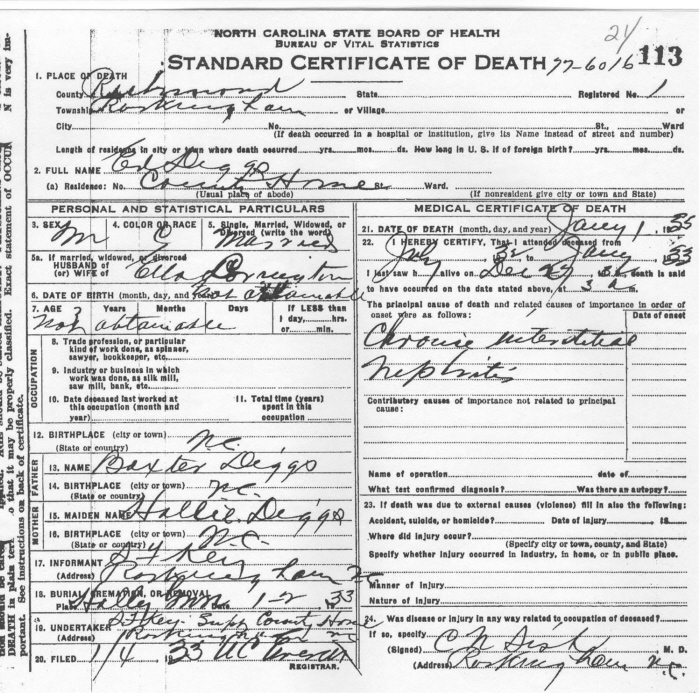 24
NORTH CAROLINA STATE BOARD OF HEALTH
BUREAU OF VITAL STATISTICS
STANDARD CERTIFICATE OF DEATH 77-6016 113
1. PLACE OF DEATH
County Richmond State Registered No. 1
Township Rockingham or Village
City No. St., Ward
(If death occurred in a hospital or institution, give its Name instead of street and number)
Length of residence in city or town where death occurred yrs. mos. ds. How long in U. S. if of foreign birth? yrs. mos. ds.
2. FULL NAME Ed Diggs
(a) Residence: No. County Home St. Ward.
(Usual place of abode) (If nonresident give city or town and State)
PERSONAL AND STATISTICAL PARTICULARS
3. SEX 4. COLOR OR RACE 5. Single, Married, Widowed, or
Divorced (write the word)
M Married
5a. If married, widowed, or divorced
HUSBAND of
(or) WIFE of Ella
6. DATE OF BIRTH (month, day, and year) Not obtainable
7. AGE Years Months Days If LESS than
1 day, hrs.
or min.
Not obtainable
OCCUPATION
8. Trade profession, or particular
kind of work done, as spinner,
sawyer, bookkeeper, etc.
9. Industry or business in which
work was done, as silk mill,
saw mill, bank, etc.
10. Date deceased last worked at
this occupation (month and
year)
11. Total time (years)
spent in this
occupation
12. BIRTHPLACE (city or town)
(State or country) N.C.
FATHER
13. NAME Baxter Diggs
14. BIRTHPLACE (city or town)
(State or country) N.C.
MOTHER
15. MAIDEN NAME Hallie Diggs
16. BIRTHPLACE (city or town)
(State or country) N.C.
17. INFORMANT
(Address) Rockingham NC
18. BURIAL, CREMATION, OR REMOVAL
Place Date 1-2 33
19. UNDERTAKER Supt County Home
(Address) Rockingham NC
20. FILED 1/4 33
REGISTRAR.
MEDICAL CERTIFICATE OF DEATH
21. DATE OF DEATH (month, day, and year) Jany 1, 19
22. I HEREBY CERTIFY, That I attended deceased from
to Jany 33
I last saw h alive on Dec 27 death is said
to have occurred on the date stated above, at 3 a m.
The principal cause of death and related causes of importance in order of
onset were as follows: Date of onset
Chronic interstitial
Nephritis
Contributory causes of importance not related to principal
cause:
Name of operation date of
What test confirmed diagnosis? Was there an autopsy?
23. If death was due to external causes (violence) fill in also the following:
Accident, suicide, or homicide? Date of injury 19
Where did injury occur?
(Specify city or town, county, and State)
Specify whether injury occurred in industry, in home, or in public place.
Manner of injury
Nature of injury
24. Was disease or injury in any way related to occupation of deceased?
If so, specify
(Signed) M. D.
(Address) Rockingham N.C.
N is very im-
Exact statement of OCCUR
it may be properly classified.
DEATH in plain ter
portant. See instructions on back of certificate.